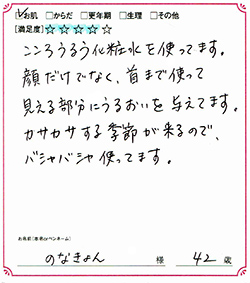 ☑お肌 □からだ □更年期 □生理 □その他
[満足度]☆☆☆☆☆
こころうるう化粧水を使ってます。
顔だけでなく、首まで使って
見える部分にうるおいを与えてます。
カサカサする季節が来るので、
バシャバシャ使ってます。
お名前[本名orペンネーム]
のなきょん 様 42 歳